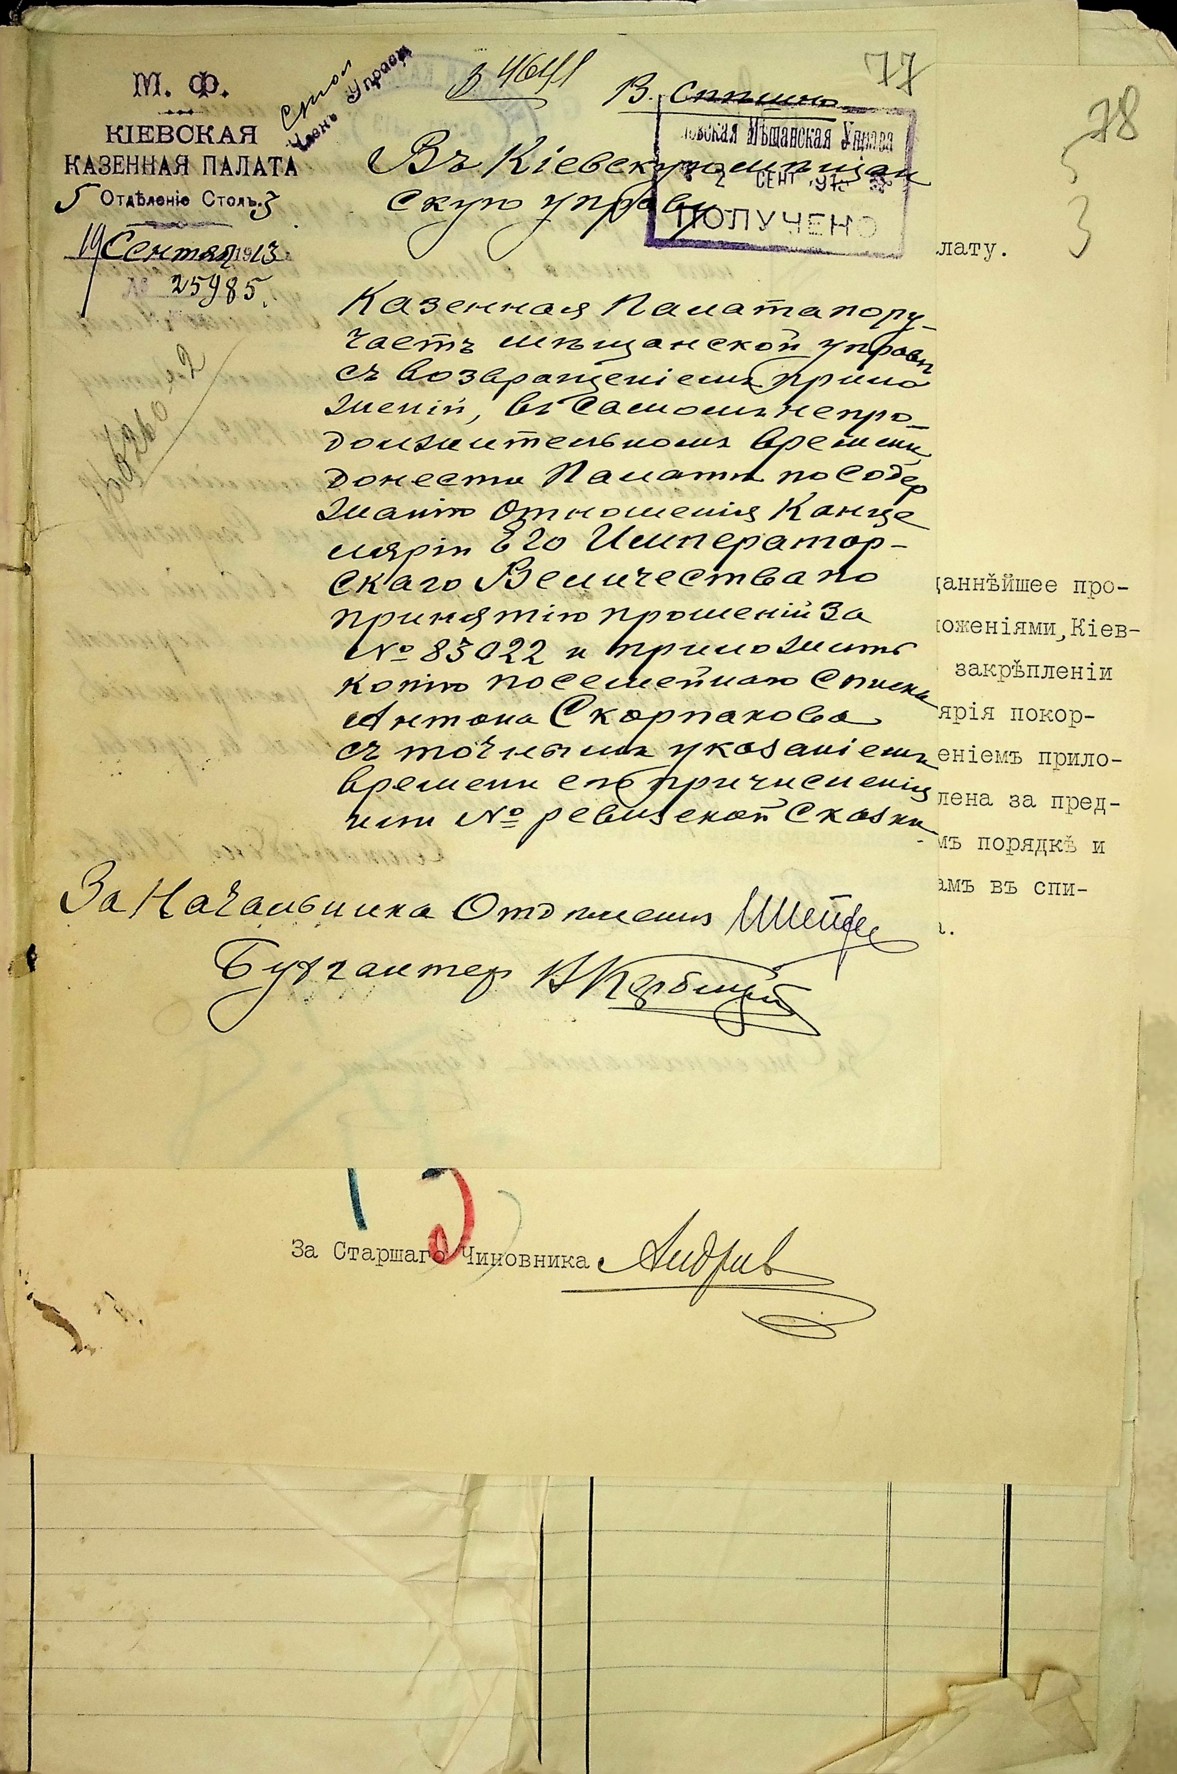 М. Ф.
КІЕВСКАЯ
КАЗЕННАЯ ПАЛАТА
5 Отдѣленіе Столъ 3
19 Сентяб 1913
№ 25985.
Стол
Членъ Управы
В. Спѣшно
77
Кіевская Мѣщанская Управа
2 СЕНТ. 191
ПОЛУЧЕНО
Въ Кіевскую мѣщан
скую управу
Казенная Палата пору-
чаетъ мѣщанской управѣ
съ возвращеніемъ прило
женій, въ самомъ непро-
должительномъ времени,
донести Палатѣ по содер
жанію отношенія Канце
ляріи Его Император-
скаго Величества по
принятію прошеній за
№ 83022 и приложить
копію посемейнаго списка
Антона Скорпакова
съ точнымъ указаніемъ
времени его причисленія
или № ревизской сказки
За Начальника Отдѣленія
Бухгалтер
78
3
лату.
даннѣйшее про-
оженіями, Кіев-
закрѣпленіи
ярія покор-
еніемъ прило-
лена за пред-
мъ порядкѣ и
амъ въ спи-
а.
За Старшаго Чиновника